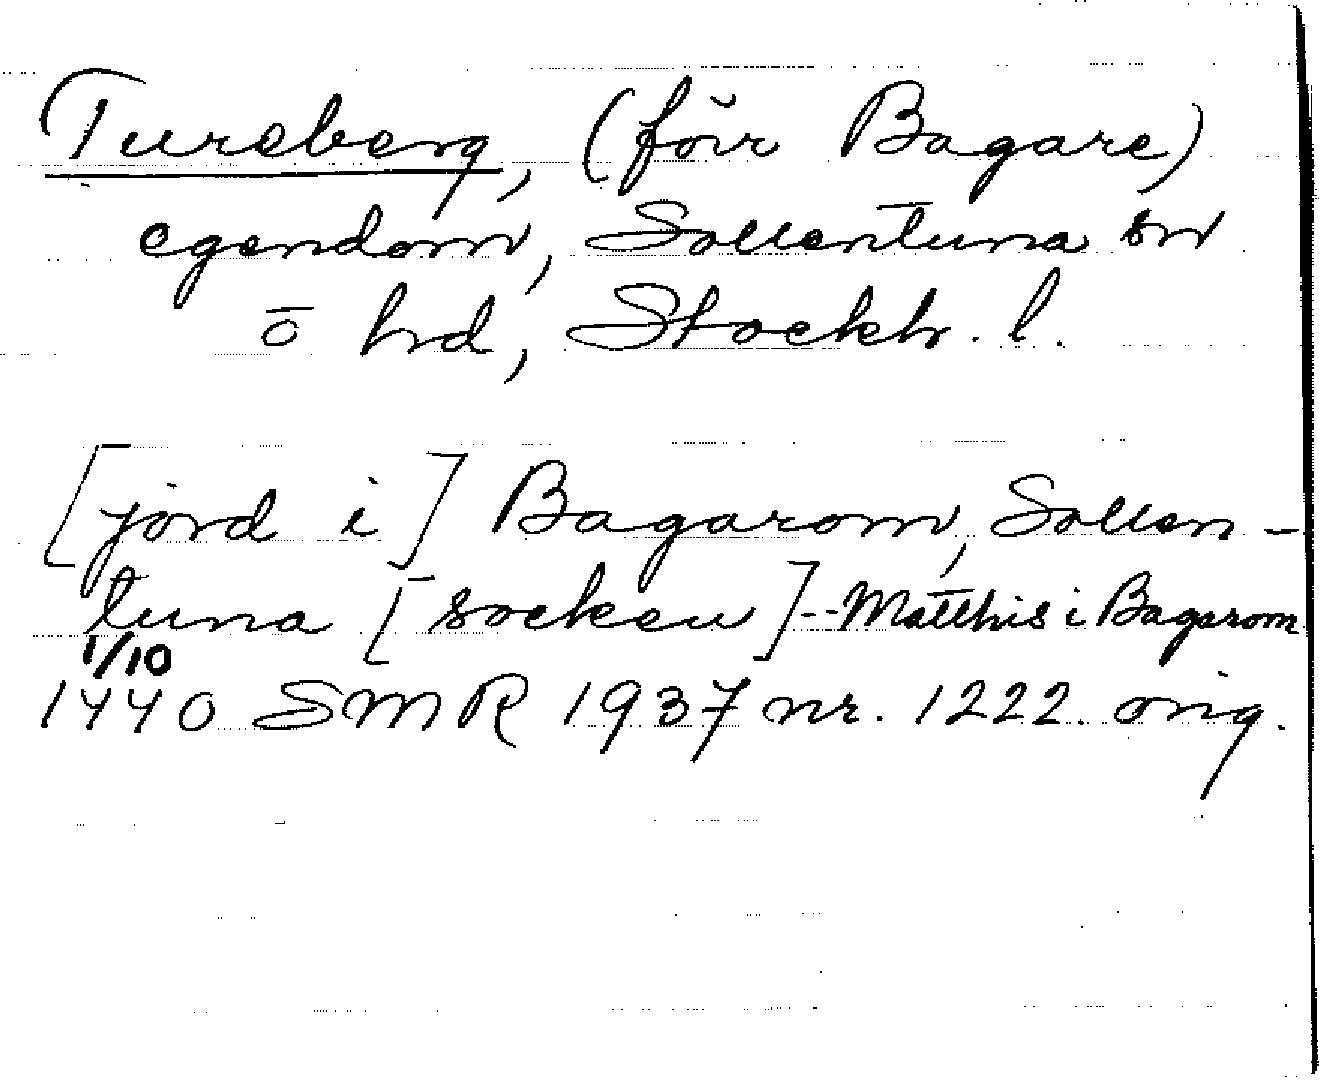 Tureberg, (förr Bagare)
egendom, Sollentuna sn
o hd, Stockh. l.
[jord i] Bagarom, Sollen-
tuna [socken]--Matthis i Bagarom
1/10
1440 SMR 1937 nr. 1222. orig.